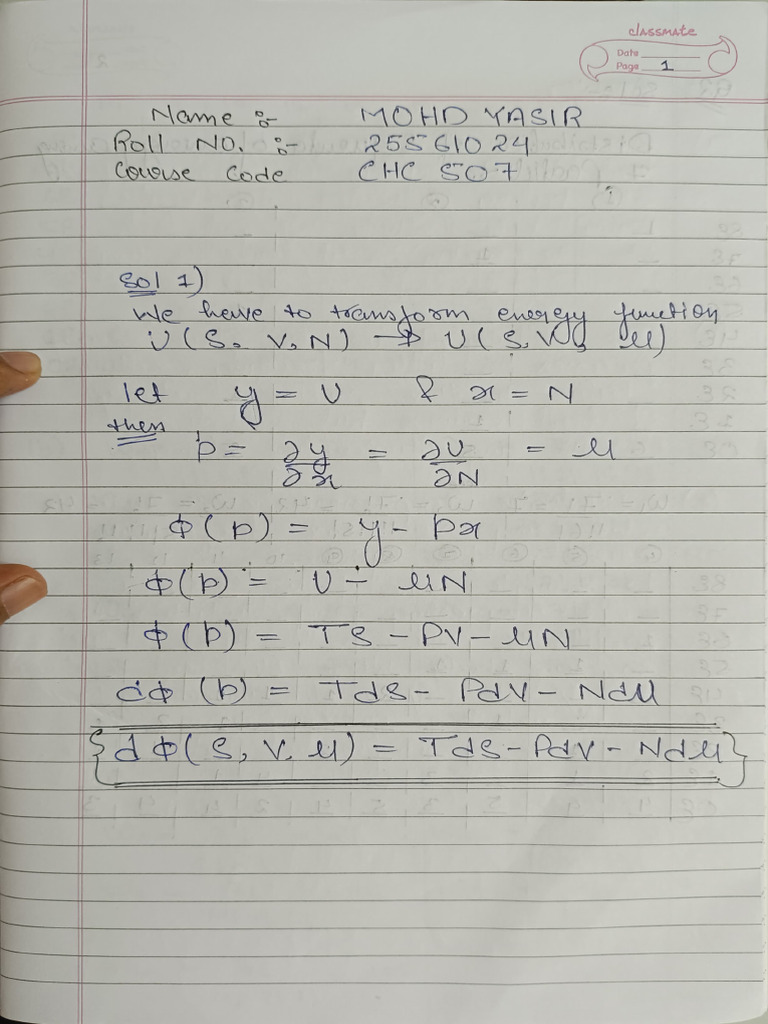 classmate
Date
Page 1
Name :- MOHD YASIR
Roll NO. :- 25561024
Course Code CHC 507
Sol 1)
We have to transform energy function
U(S, V, N) → U(S, V, μ)
let y = U & x = N
then
p = ∂y/∂x = ∂U/∂N = μ
ϕ(p) = y - px
ϕ(p) = U - μN
ϕ(p) = TS - PV - μN
dϕ(p) = TdS - PdV - Ndμ
{dϕ(S, V, μ) = TdS - PdV - Ndμ}